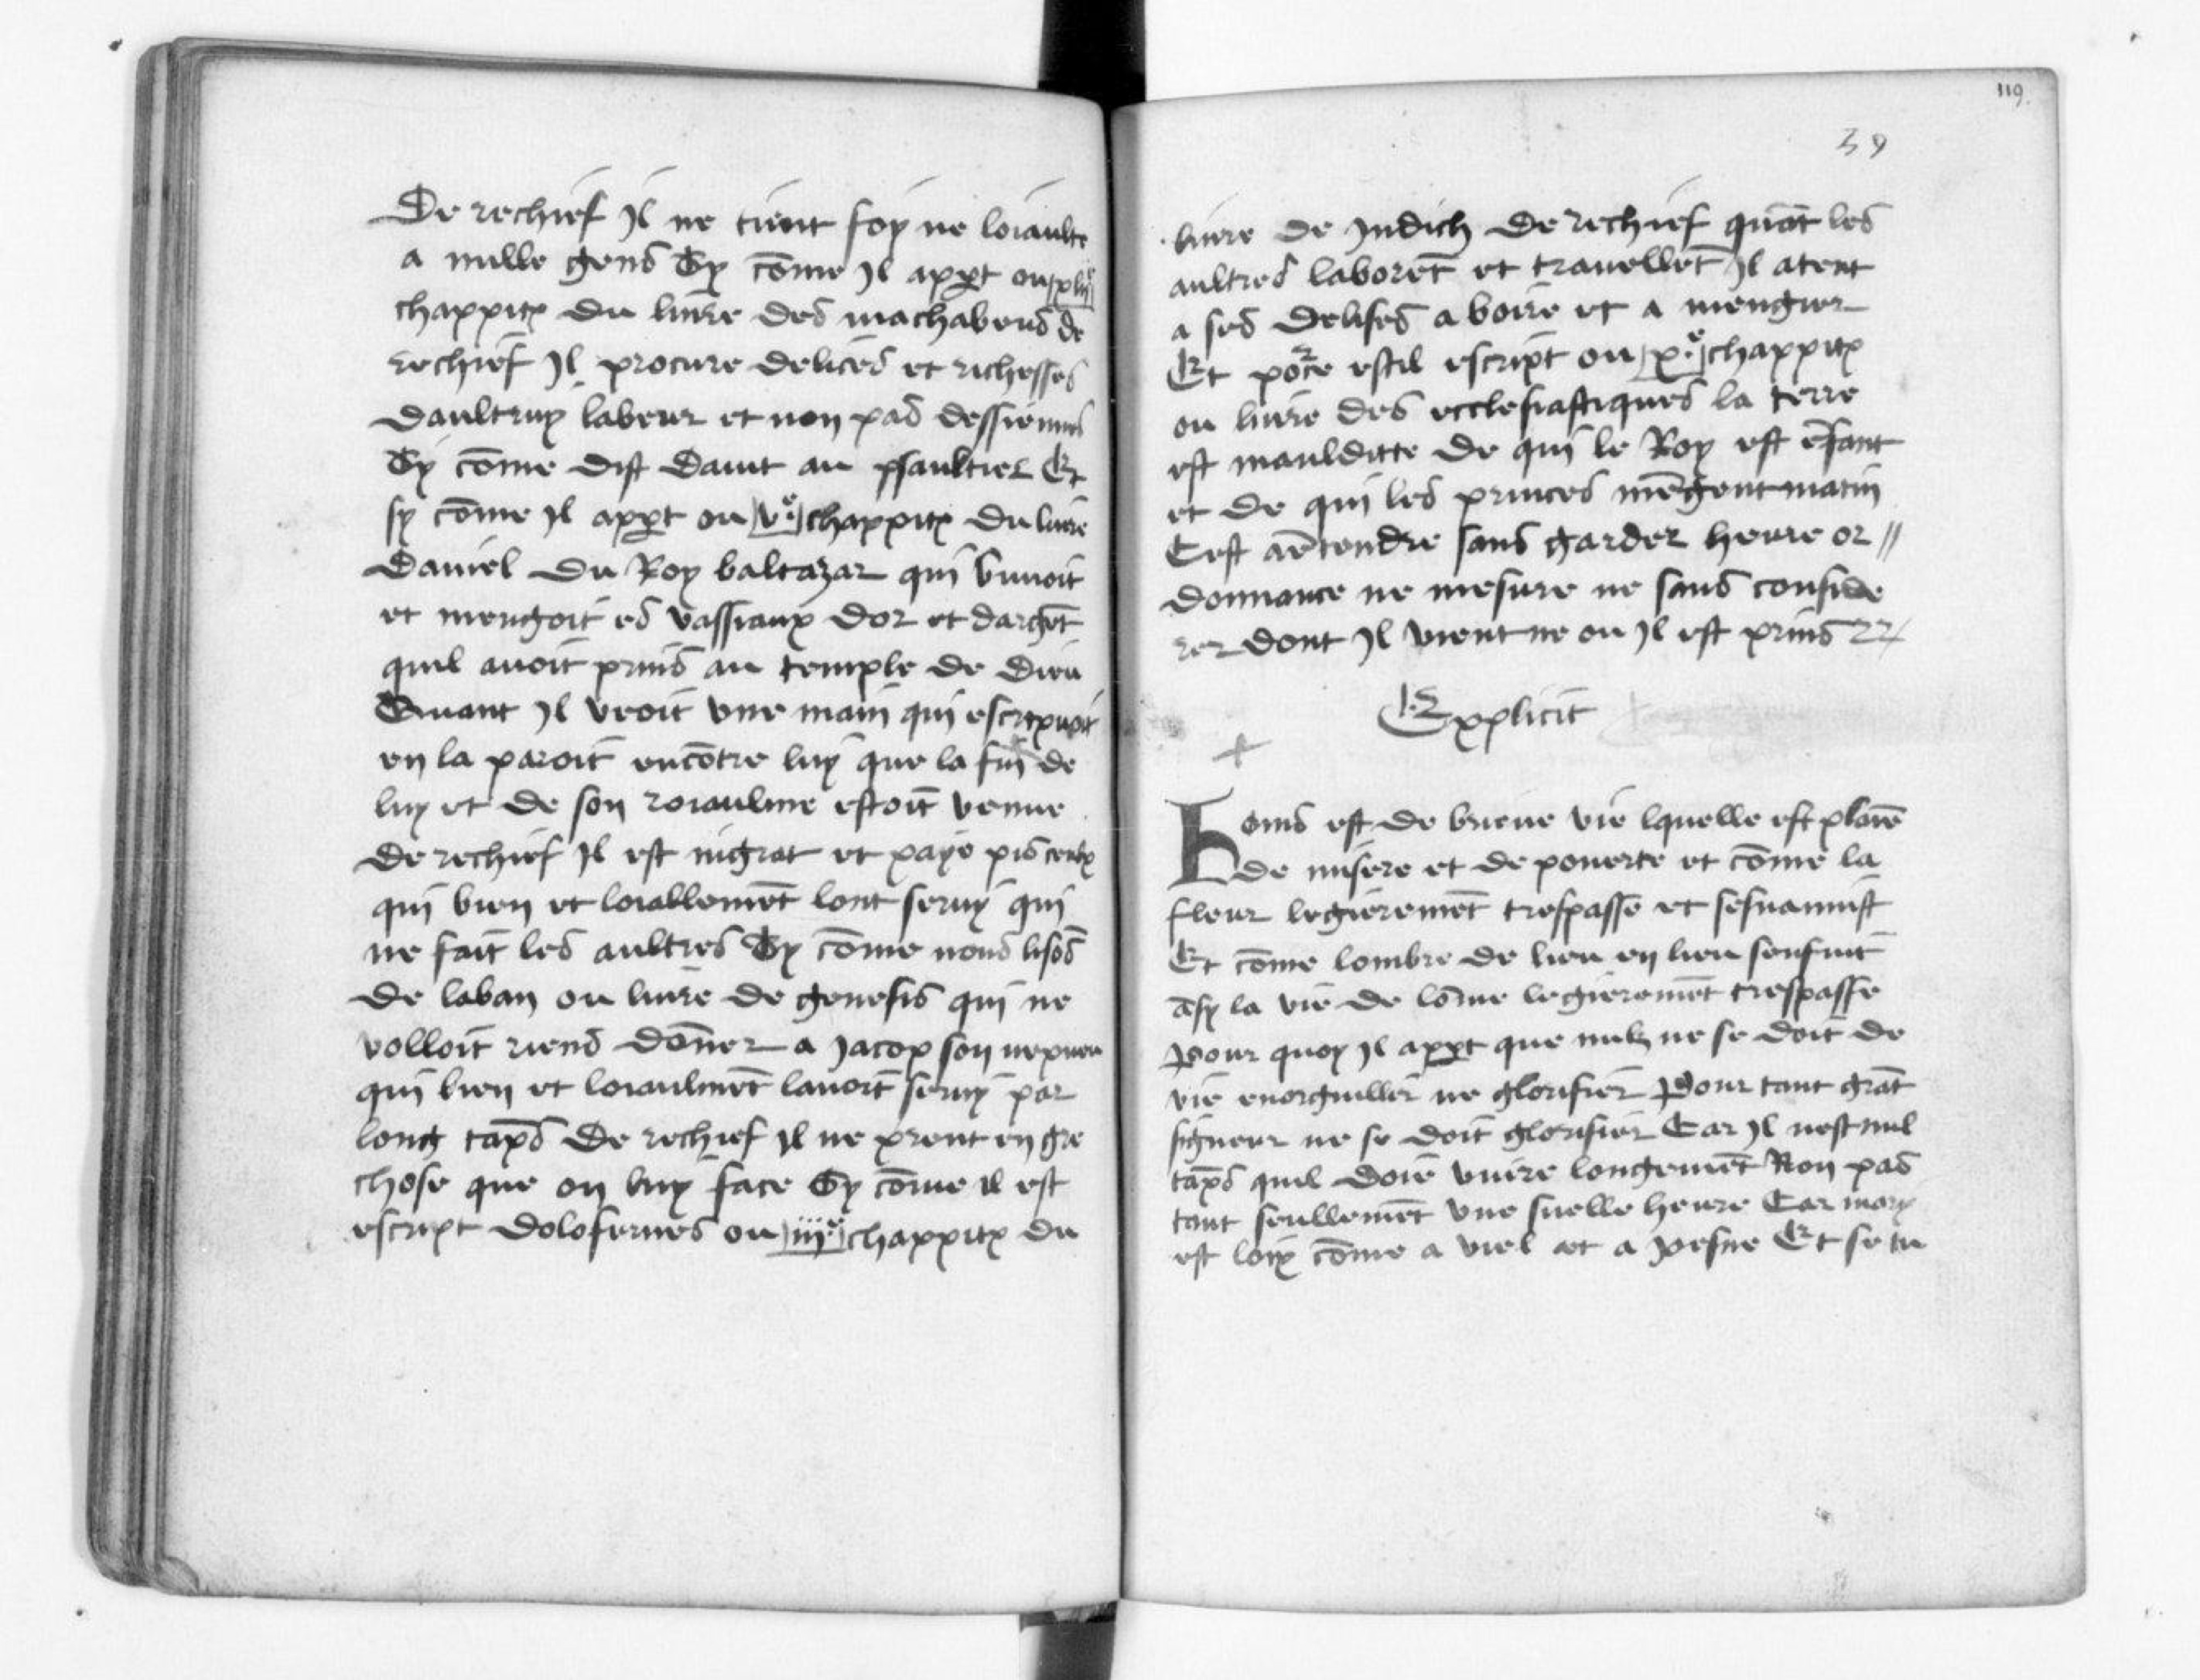 De rechief Jl ne tient foy ne loiaulte
a nulle gens Sy cõme Jl appt ou xlije
chappitre du liure des machabeus de
rechief Jl procure delices et richesses
daultruy labeur et non pas dessiennes
Sy cõme dist dauit au psaultier Et
sy cõme Jl appt ou ve chappitre du liure
daniel du Roy baltazar qui buuoit
et mengoit es vassiaux dor et dargẽt
quil auoit prins au temple de dieu
Quant Jl veoit vne main qui escripuoit
en la paroit encõtre luy que la fin de
luy et de son roiaulme estoit venue
de rechief Jl est ingrat et paye pis ceulx
qui bien et loiallemẽt lont seruy qui
ne fait les aultres Sy cõme nous lisõs
de laban ou liure de genesis qui ne
volloit riens dõner a Jacop son nepueu
qui bien et loiaulmẽt lauoit seruy par
long tãps De rechief Jl ne prent en gre
chose que on luy face Sy cõme il est
escript dolofernes ou iije chappitre du
119.
39
liure de Judich De rechief quãt les
aultres laborẽt et trauellẽt Jl atent
a ses delises a boire et a mengier
Et pource estil escript ou x.e chappitre
ou liure des ecclesiastiques la terre
est maulditte de qui le Roy est ẽfant
et de qui les princes mẽgent matin
Cest aẽtendre sans garder heure or //
donnance ne mesure ne sans conside
rer dont Jl vient ne ou Jl est prins
Explicit
Homs est de brieue vie lquelle est plaine
de misere et de pouerte et cõme la
fleur legieremẽt trespasse et sesuanuist
Et cõme lombre de lieu en lieu senfuit
ãsy la vie de lõme legieremẽt trespasse
Pour quoy Jl appt que nulz ne se doit de
vie enorguillir ne glorifier Pour tant grãt
signeur ne se doit glorifier Car Jl nest nul
tãps quil doie viure longemẽt Non pas
tant seullemẽt vne suelle heure Car mory
est loix cõme a viel et a Joesne Et se tu